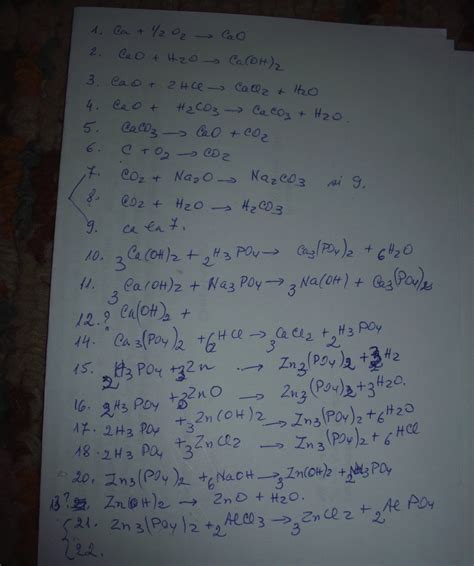 1. Ca + 1/2 O2 → CaO
2. CaO + H2O → Ca(OH)2
3. CaO + 2HCl → CaCl2 + H2O
4. CaO + H2CO3 → CaCO3 + H2O.
5. CaCO3 → CaO + CO2
6. C + O2 → CO2
7. CO2 + Na2O → Na2CO3 si 9.
8. CO2 + H2O → H2CO3
9. ca la 7.
10. 3Ca(OH)2 + 2H3PO4 → Ca3(PO4)2 + 6H2O
11. 3Ca(OH)2 + Na3PO4 → 3Na(OH) + Ca3(PO4)2
12. ? Ca(OH)2 +
14. Ca3(PO4)2 + 6HCl → 3CaCl2 + 2H3PO4
15. 2H3PO4 + 3Zn → Zn3(PO4)2 + 3H2
16. 2H3PO4 + 3ZnO → Zn3(PO4)2 + 3H2O.
17. 2H3PO4 + 3Zn(OH)2 → Zn3(PO4)2 + 6H2O
18. 2H3PO4 + 3ZnCl2 → Zn3(PO4)2 + 6HCl
20. Zn3(PO4)2 + 6NaOH → 3Zn(OH)2 + Na3PO4
13? Zn(OH)2 → ZnO + H2O.
21. Zn3(PO4)2 + 2AlCl3 → 3ZnCl2 + 2AlPO4
22.